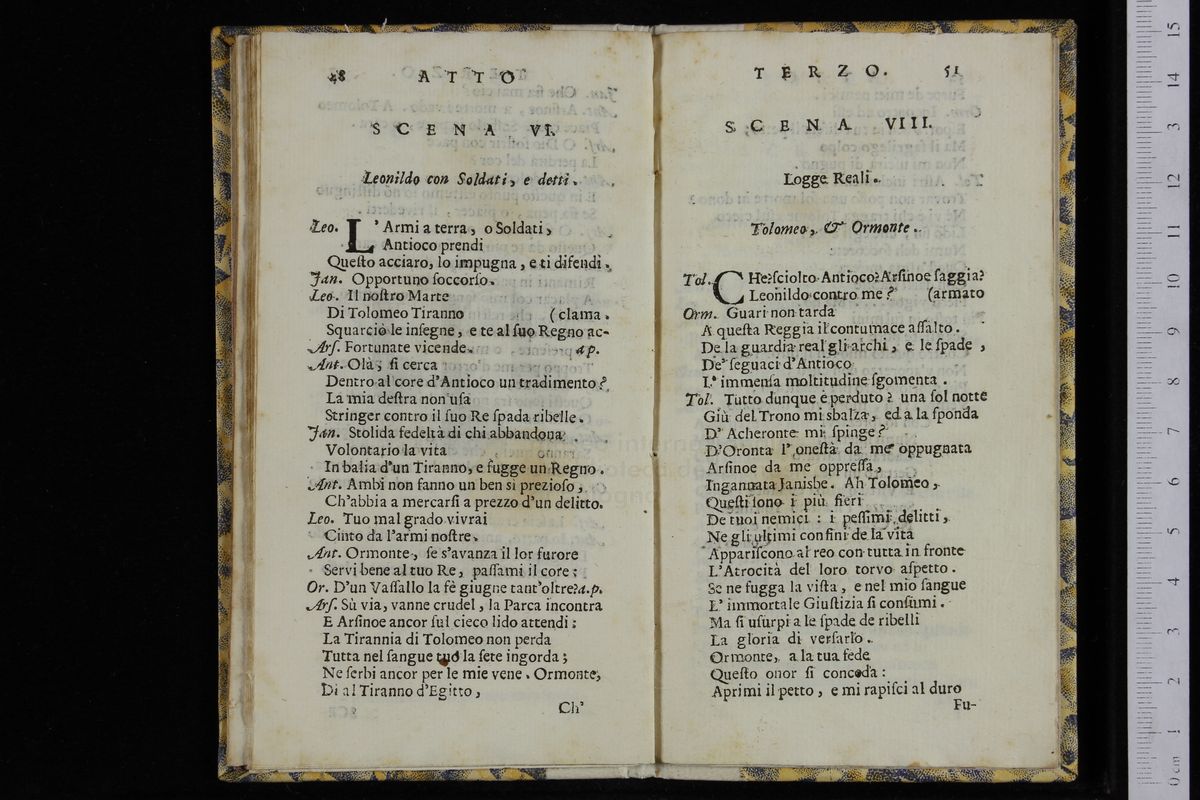 48 ATTO
SCENA VI.
Leonildo con Soldati, e detti.
Leo. L' Armi a terra, o Soldati,
Antioco prendi
Queſto acciaro, lo impugna, e ti difendi.
Jan. Opportuno ſoccorſo.
Leo. Il noſtro Marte
Di Tolomeo Tiranno (clama.
Squarciò le inſegne, e te al ſuo Regno ac-
Arſ. Fortunate vicende. a p.
Ant. Olà; ſi cerca
Dentro al core d'Antioco un tradimento?
La mia deſtra non uſa
Stringer contro il ſuo Re ſpada ribelle.
Jan. Stolida fedeltà di chi abbandona
Volontario la vita
In balìa d'un Tiranno, e fugge un Regno.
Ant. Ambi non fanno un ben sì prezioſo,
Ch'abbia a mercarſi a prezzo d'un delitto.
Leo. Tuo mal grado vivrai
Cinto da l'armi noſtre.
Ant. Ormonte, ſe s'avanza il lor furore
Servi bene al tuo Re, paſſami il core;
Or. D'un Vaſſallo la fè giugne tant'oltre? a.p.
Arſ. Sù via, vanne crudel, la Parca incontra
E Arſinoe ancor ſul cieco lido attendi:
La Tirannia di Tolomeo non perda
Tutta nel ſangue tuo la ſete ingorda;
Ne ſerbi ancor per le mie vene. Ormonte,
Di al Tiranno d'Egitto,
Ch'
TERZO. 51
SCENA VIII.
Logge Reali.
Tolomeo, & Ormonte.
Tol. CHe? ſciolto Antioco? Arſinoe ſaggia?
Leonildo contro me? (armato
Orm. Guari non tarda
A queſta Reggia il contumace aſſalto.
De la guardia real gli archi, e le ſpade,
De' ſeguaci d'Antioco
L' immenſa moltitudine ſgomenta.
Tol. Tutto dunque è perduto? una ſol notte
Giù del Trono mi sbalza, ed a la ſponda
D' Acheronte mi ſpinge?
D'Oronta l' oneſtà da me oppugnata
Arſinoe da me oppreſſa,
Ingannata Janisbe. Ah Tolomeo,
Queſti ſono i più fieri
De tuoi nemici: i peſſimi delitti,
Ne gli ultimi confini de la vita
Appariſcono al reo con tutta in fronte
L'Atrocità del loro torvo aſpetto.
Se ne fugga la viſta, e nel mio ſangue
L' immortale Giuſtizia ſi conſumi.
Ma ſi uſurpi a le ſpade de ribelli
La gloria di verſarlo.
Ormonte, a la tua fede
Queſto onor ſi conceda:
Aprimi il petto, e mi rapiſci al duro
Fu-